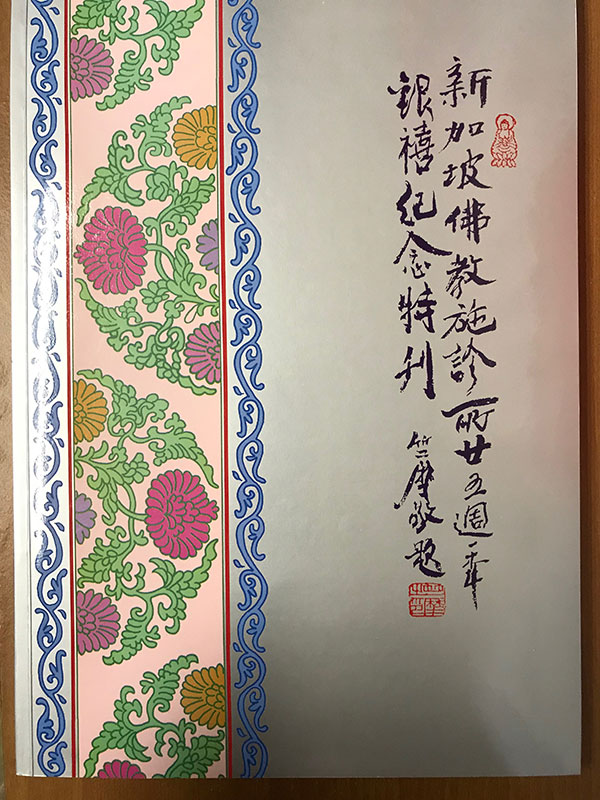 新加坡佛教施診所廿五週年
銀禧紀念特刊
竺摩敬題